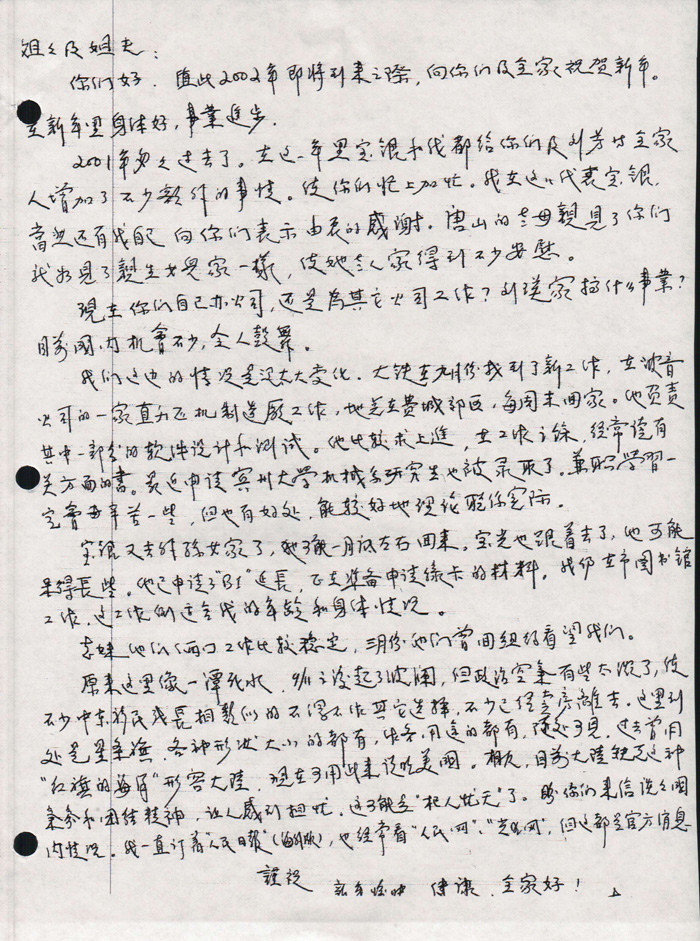 姐姐及姐夫：
你们好．值此2002年即将到来之際，向你们及全家祝贺新年。
在新年里身体好，事業進步．
2001年匆匆过去了。在这一年里宝银和我都给你们及刘芳的全家
人增加了不少額外的事情。使你们忙上加忙。我在这儿代表宝银，
當然还有我自己向你们表示由衷的感謝。唐山的老母親見了你们
就如見了親生女兒家一樣，使她老人家得到不少安慰。
現在你们自己办公司，还是為其它公司工作？刘瑛家搞什么事業？
目前國内机會不少，令人鼓舞。
我们这边的情况是没太大变化．大铁在九月份找到了新工作，在波音
公司的一家直升飞机制造厰工作，地点在费城郊区，每周末回家。他负责
其中一部分的软件设计和测试。他比较求上進，在工作之餘，经常读有
关方面的書。最近申请宾州大学机械系研究生也被录取了。兼职学習一
定會更辛苦一些，但也有好处，能较好地理论聯係实际。
宝银又去外孫女家了，她可能一月底左右回来。宝光也跟着去了，他可能
呆得長些。他已申请了"B1"延長，正在准备申请绿卡的材料。我仍在市图书館
工作，这工作倒适合我的年龄和身体情况。
他们俩口工作比较穩定，三月份他们曾回纽约看望我们。
原来这里像一潭死水，911之後起了波阑，但政治空氣有些太濃了，使
不少中東移民或長相類似的不得不作其它选择，不少已经卖房離去。这里到
处是星条旗，各种形状大小的都有，作各用途的都有，随处可見，过去曾用
"红旗的海洋"形容大陸，現在可用此来说明美国。相反，目前大陸缺乏这种
氣氛和团结精神，让人感到担忧，这可能是"杞人忧天"了。盼你们来信谈谈國
内情况。我一直订着"人民日報"(海外版)，也经常看"人民網"、"光明网"，但这都是官方消息．
謹祝
新年愉快 健康．全家好！